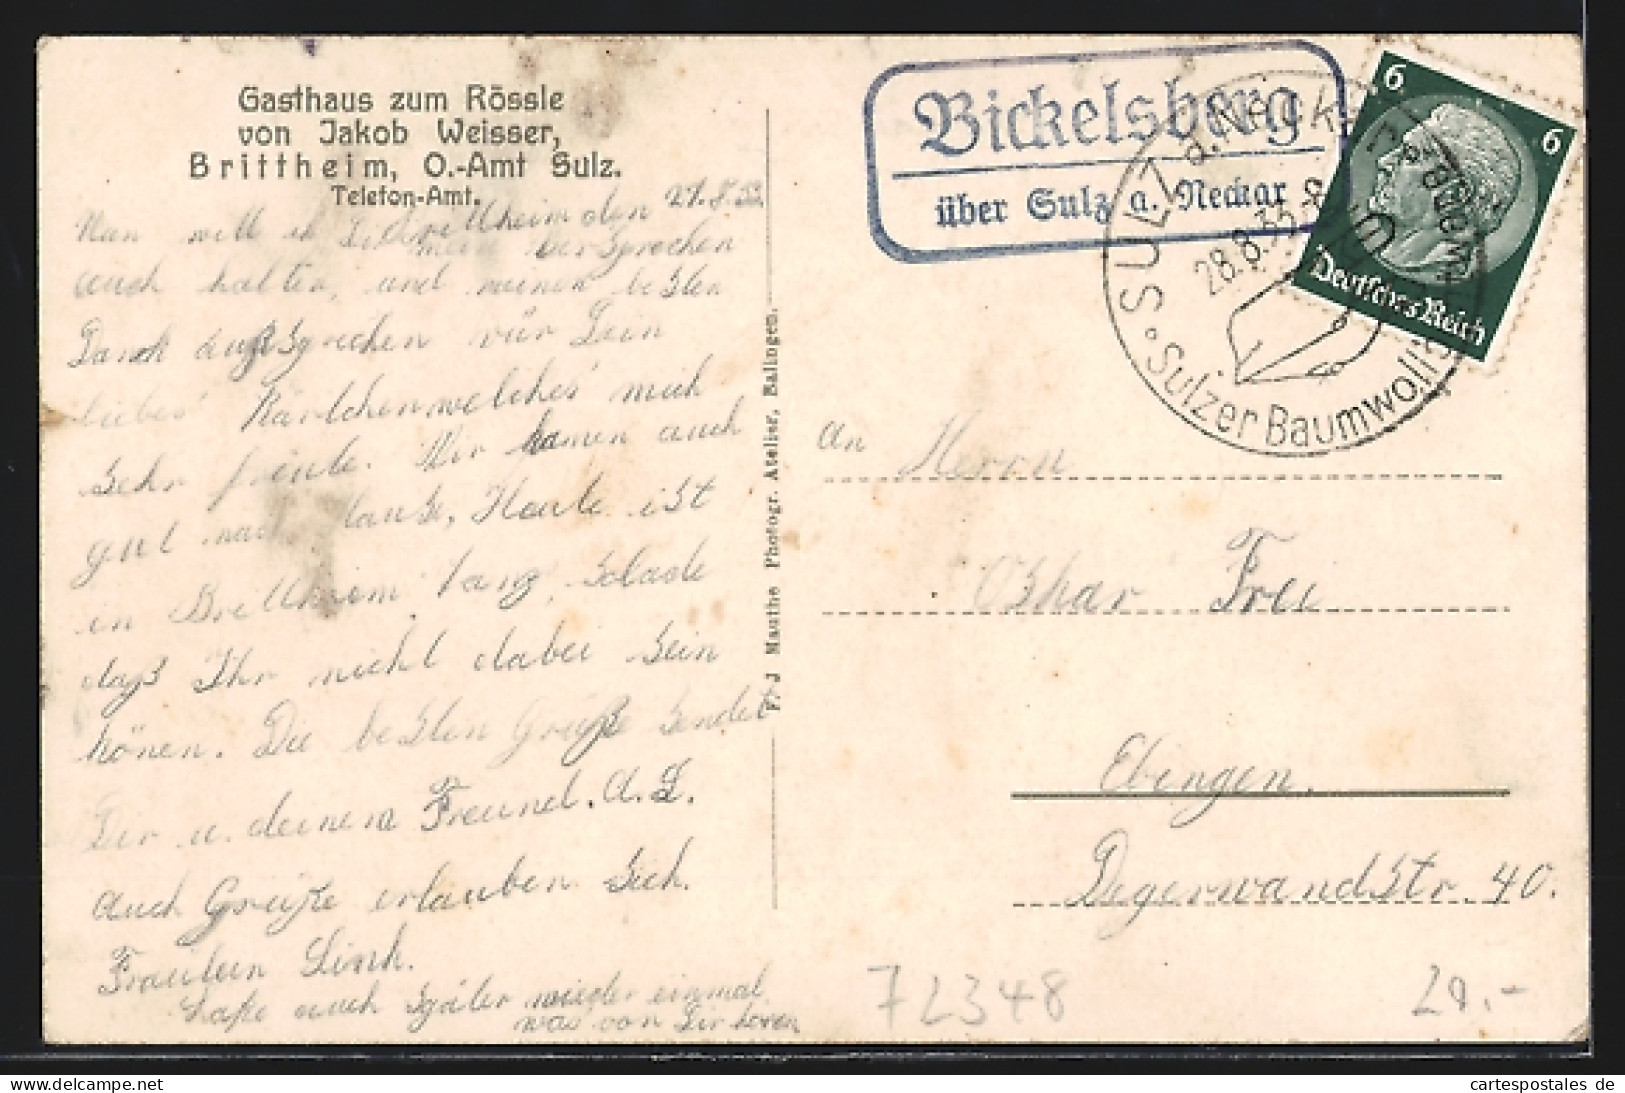 Gasthaus zum Rössle
von Jakob Weisser,
Brittheim, O.-Amt Sulz.
Telefon-Amt.
Brittheim den 27.8.33.
Nun will ich Dir mein versprechen
auch halten, und meinen besten
Dank außsprechen vür Dein
liebes Kärtchen welches mich
sehr freute. Wir kamen auch
gut nach Hause, Heute ist
in Brittheim Tanz, Schade
daß Ihr nicht dabei sein
könen. Die besten Grüße sendet
Dir u. deinem Freund. A. L.
auch Grüße erlauben sich.
Fräulein Link.
Laße auch später wieder einmal
was von Dir hören
F. J Mauthe Photogr. Atelier, Balingen.
Bickelsberg
über Sulz a. Neckar
SULZ a. Neckar
28.8.33. 8
Sulzer Baumwoll
6
6
Deutsches Reich
An Herrn
Oskar Frei
Ebingen.
Degerwandstr. 40.
72348
20.-
delcampe.net
cartespostales de